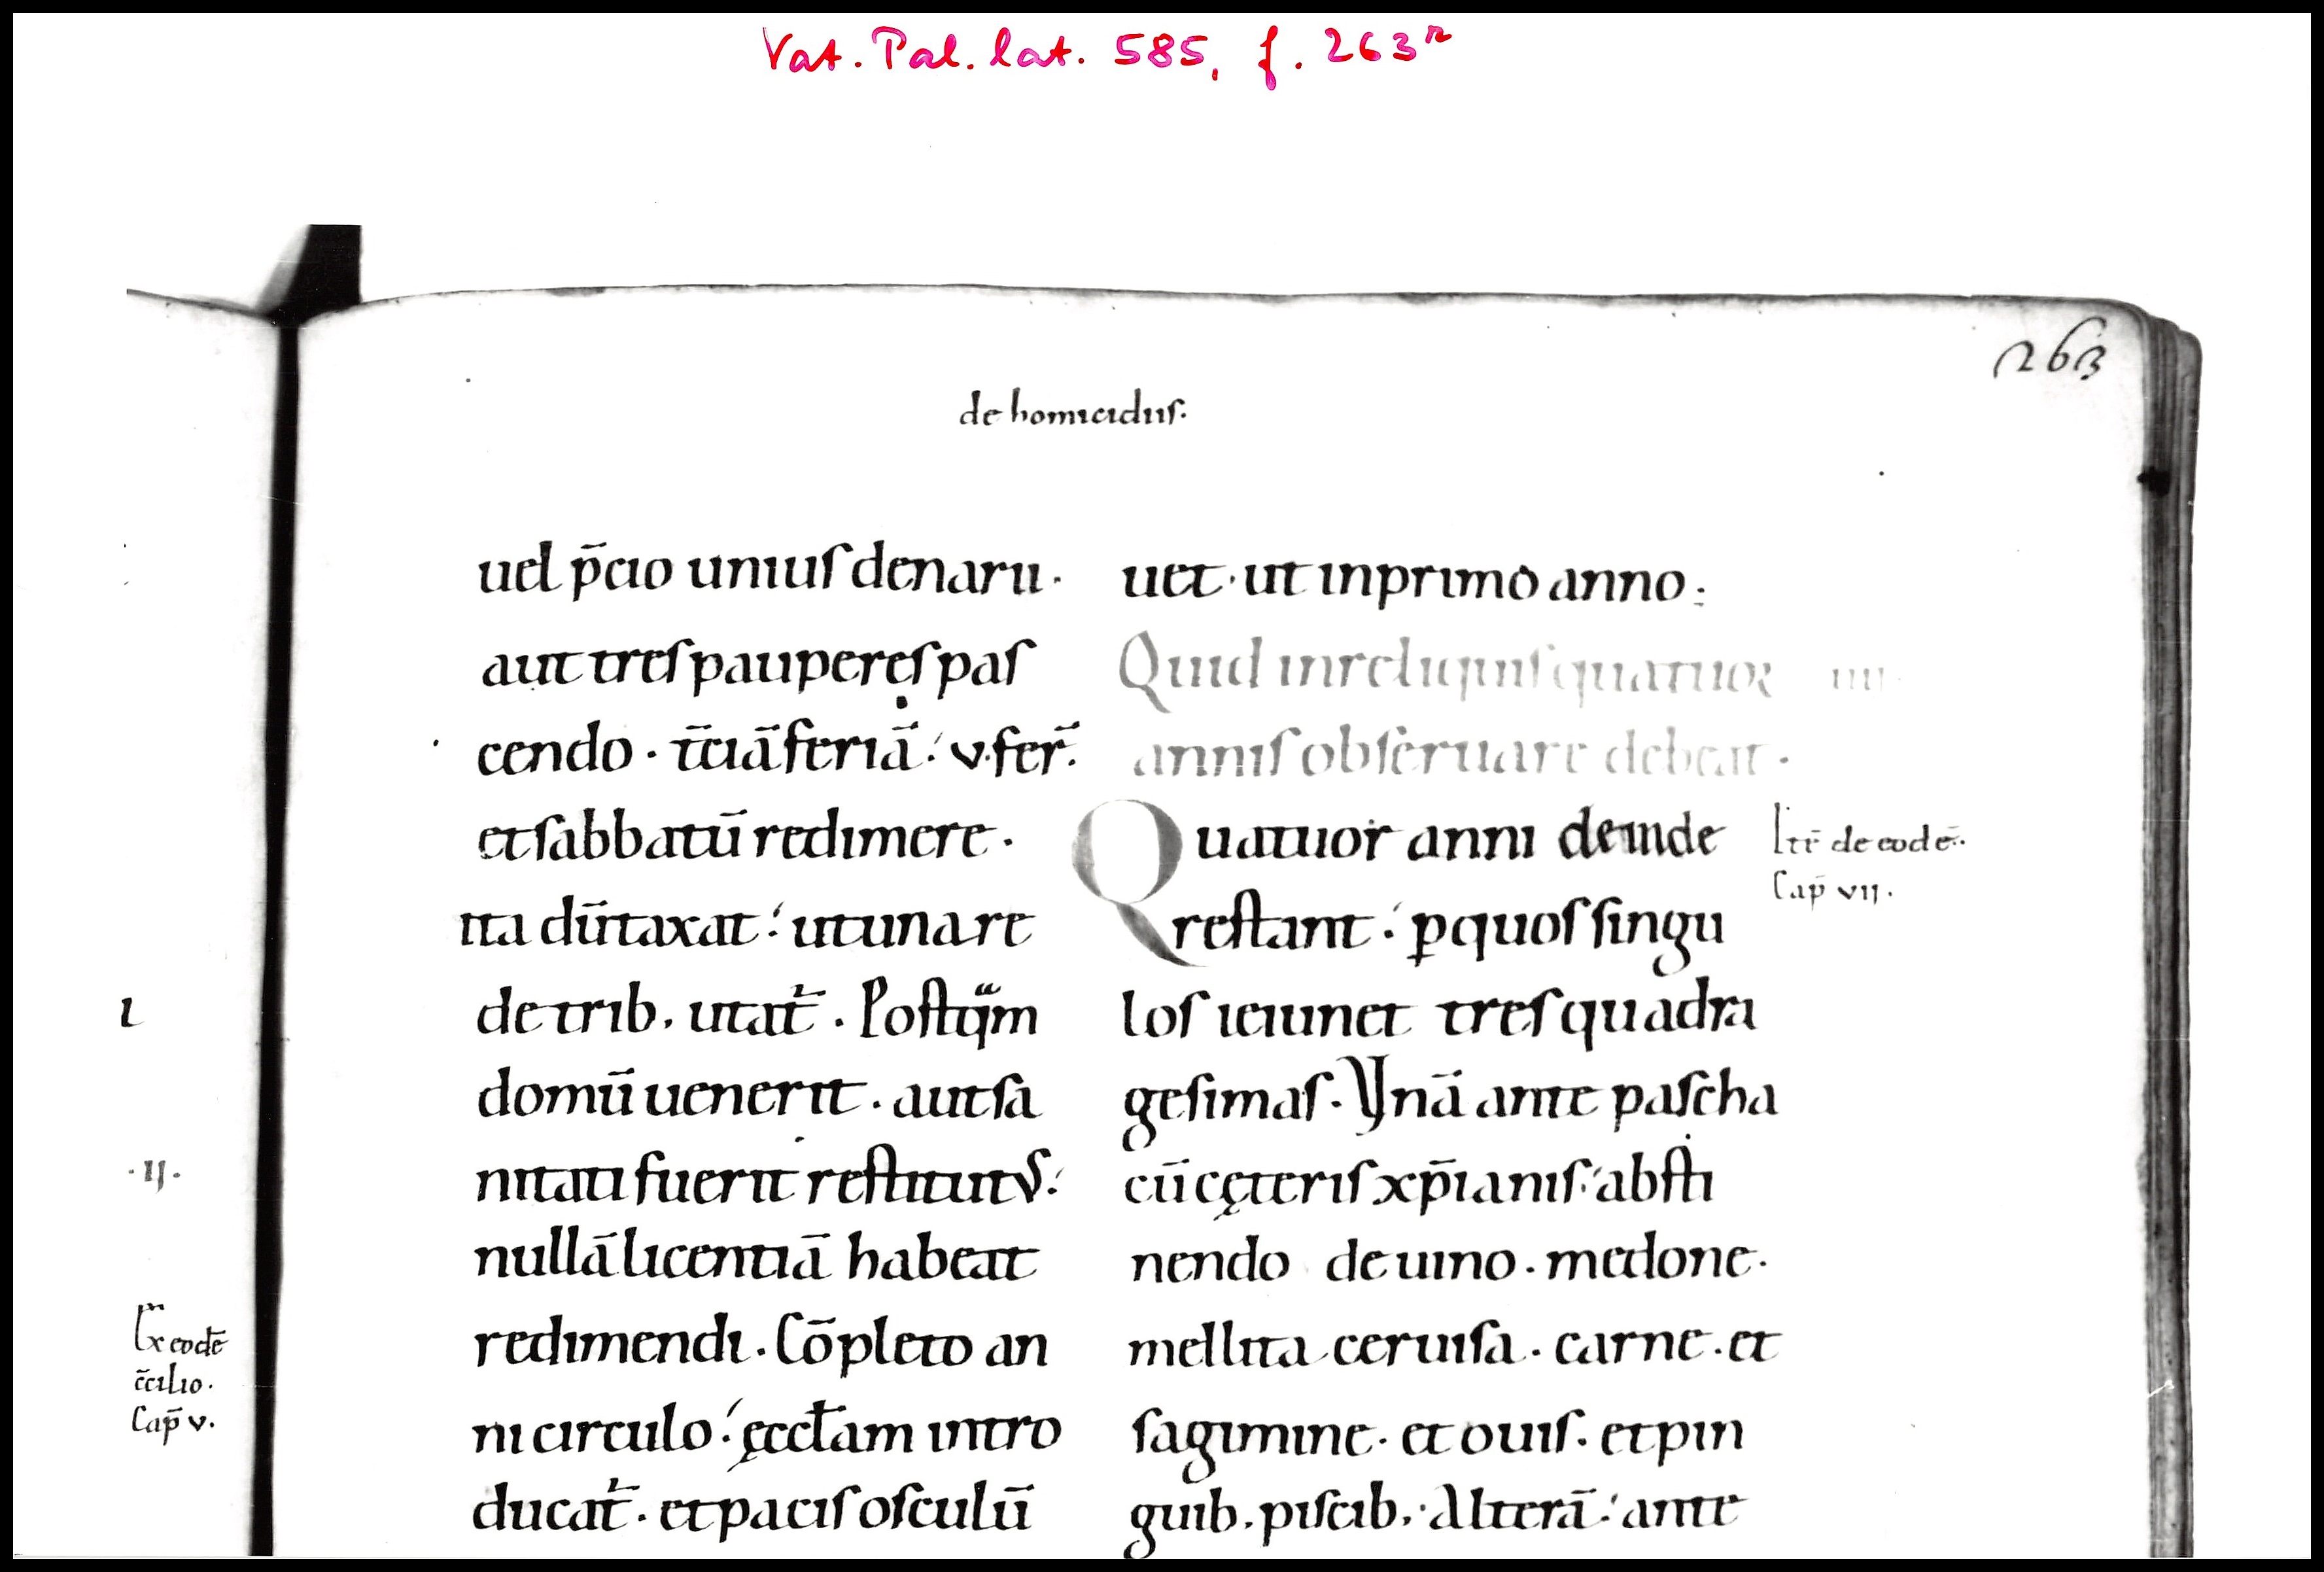 Vat. Pal. lat. 585, f. 263r
263
de homicidiis.
uel p̄cio unius denarii.
aut tres pauperes pas
cendo. t̄ciā feriā: v. fer̄.
et sabbatū redimere.
ita dūtaxat: ut una re
de trib. utat̄. Postqm
domū uenerit. aut sa
nitati fuerit restitutus:
nullā licentiā habeat
redimendi. Cōpleto an
ni circulo: ęcclam intro
ducat̄. et pacis osculū
uet. ut in primo anno:
Quid in reliquis quatuor iiii
annis obseruare debeat.
Quatuor anni deinde
restant: p quos singu
los ieiunet tres quadra
gesimas. Vnā ante pascha
cū cęteris xp̄ianis: absti
nendo de uino. medone.
mellita ceruisa. carne. et
sagimine. et ouis. et pin
guib. piscib. Alterā: ante
Itē de eodē.
Cap̄ vii.
l
.ii.
Ex eodē
c̄cilio.
Cap̄ v.